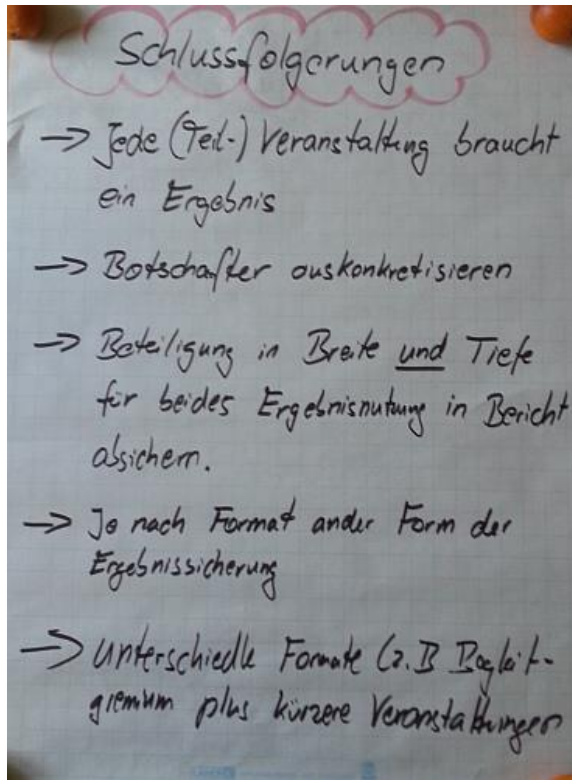 Schlussfolgerungen
→ Jede (Teil-) Veranstaltung braucht
ein Ergebnis
→ Botschafter auskonkretisieren
→ Beteiligung in Breite und Tiefe
für beides Ergebnisnutzung in Bericht
absichern.
→ Je nach Format ander Form der
Ergebnissicherung
→ Unterschiedle Formate (z.B Begleit-
gremium plus kürzere Veranstaltungen